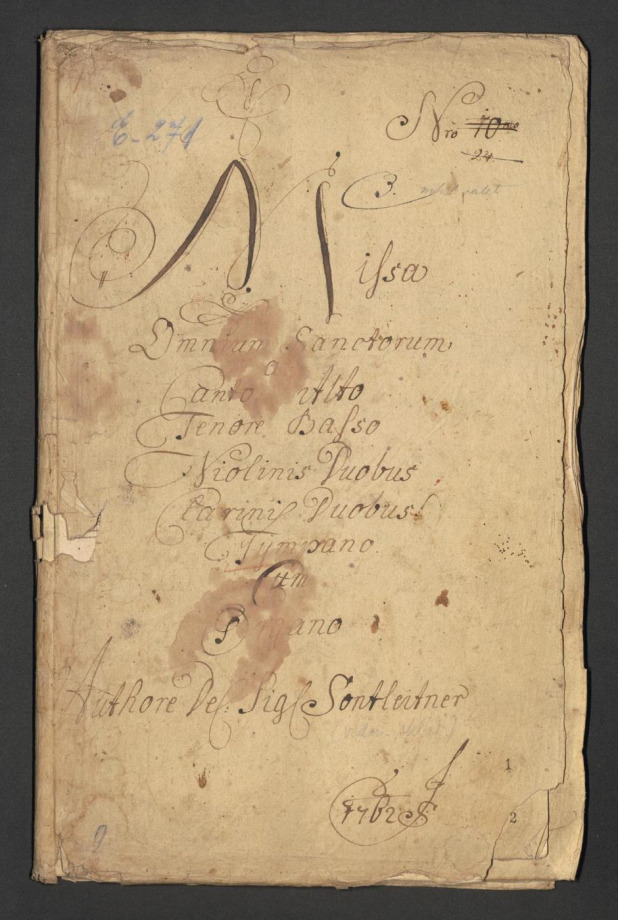 E-271
Nro 70mo
24.
3.
Missa
Omnium Sanctorum
a
Canto Alto
Tenore Basso
Violinis Duobus
Clarinis Duobus
Tympano
Cum
Organo
Authore Del: Sig: Sontleitner
1762
1
2
9